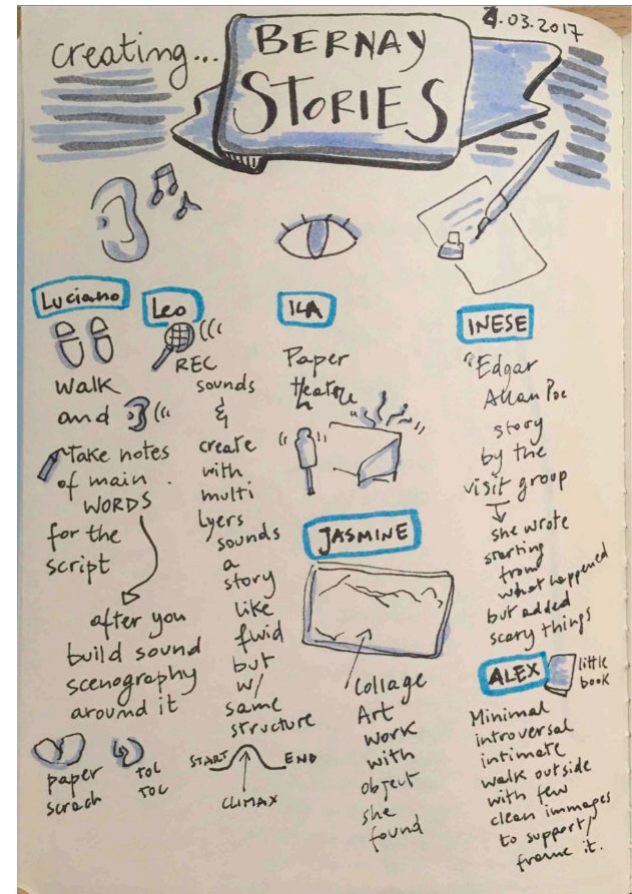 creating...
BERNAY
STORIES
4.03.2017
Luciano
walk
and
Take notes
of main
WORDS
for the
script
after you
build sound
scenography
around it
paper
scrach
toc
toc
Leo
REC
sounds
&
create
with
multi
lyers
sounds
a
story
like
fluid
but
w/
same
structure
START
END
CLIMAX
ILA
Paper
theatre
JASMINE
Collage
Art
work
with
object
she
found
INESE
"Edgar
Allan Poe
story
by the
visit group
she wrote
starting
from
what happened
but added
scary things
ALEX
little
book
Minimal
introversal
intimate
walk outside
with few
clean immages
to support/
frame it.